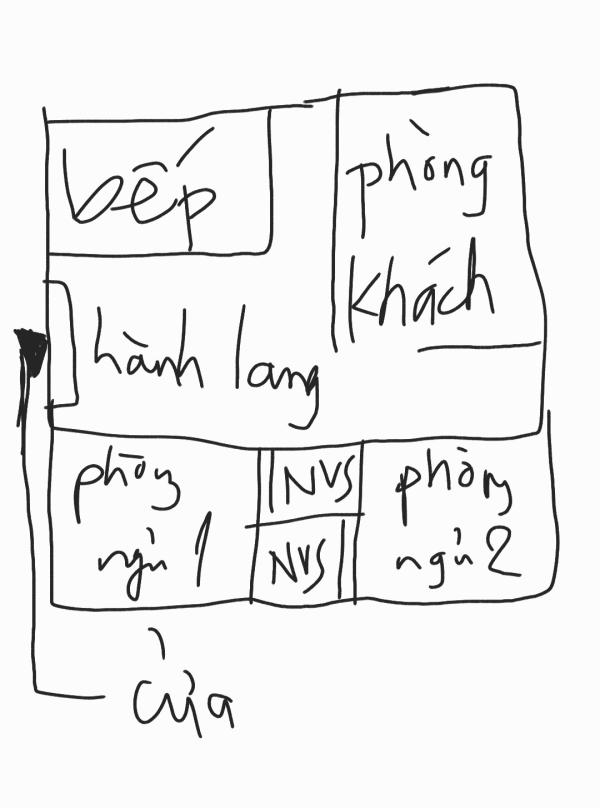 bếp
phòng
khách
hành lang
phòng
ngủ 1
NVS
NVS
phòng
ngủ 2
cửa